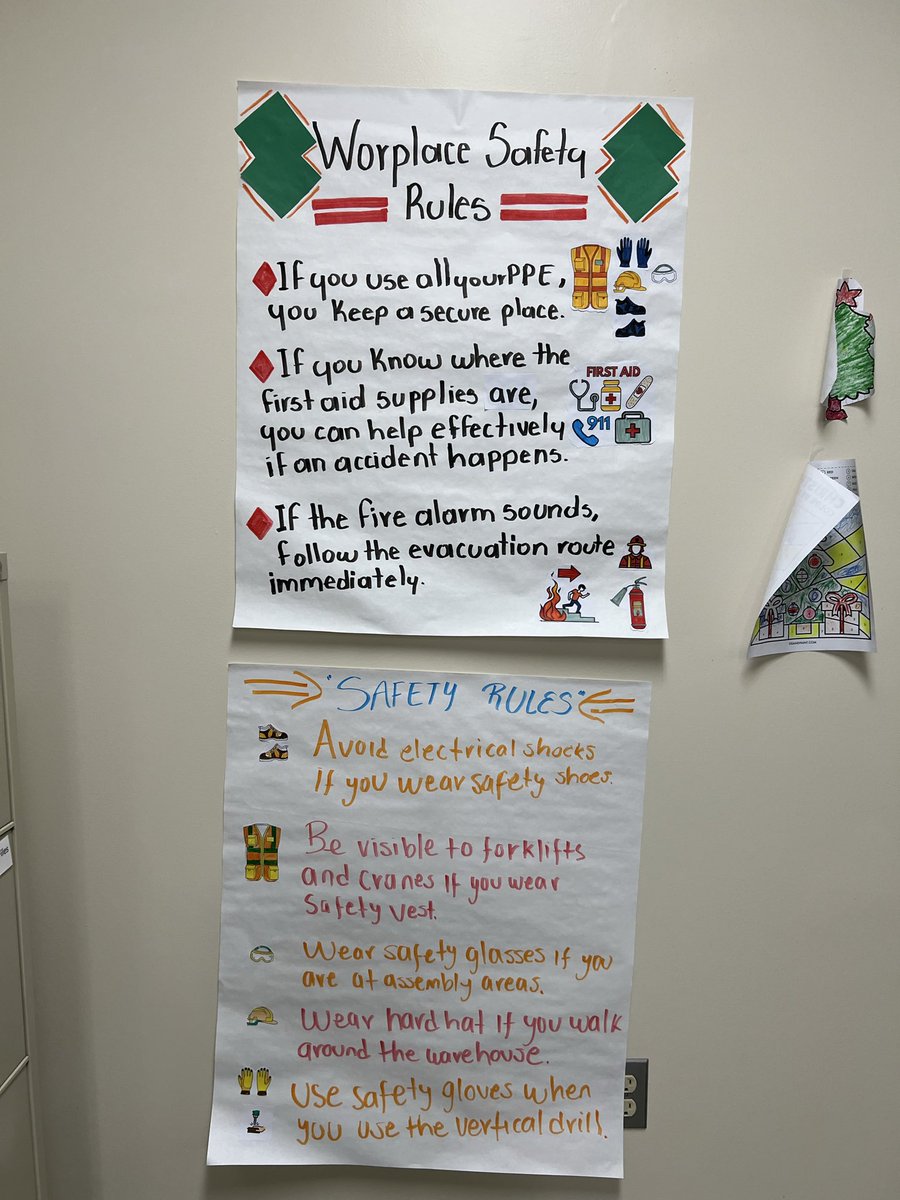 Worplace Safety
Rules
If you use all your PPE,
you keep a secure place.
If you know where the
first aid supplies are,
you can help effectively
if an accident happens.
FIRST AID
911
If the fire alarm sounds,
follow the evacuation route
immediately.
"SAFETY RULES"
Avoid electrical shocks
if you wear safety shoes.
Be visible to forklifts
and cranes if you wear
safety vest.
Wear safety glasses if you
are at assembly areas.
Wear hard hat if you walk
around the warehouse.
Use safety gloves when
you use the vertical drill.